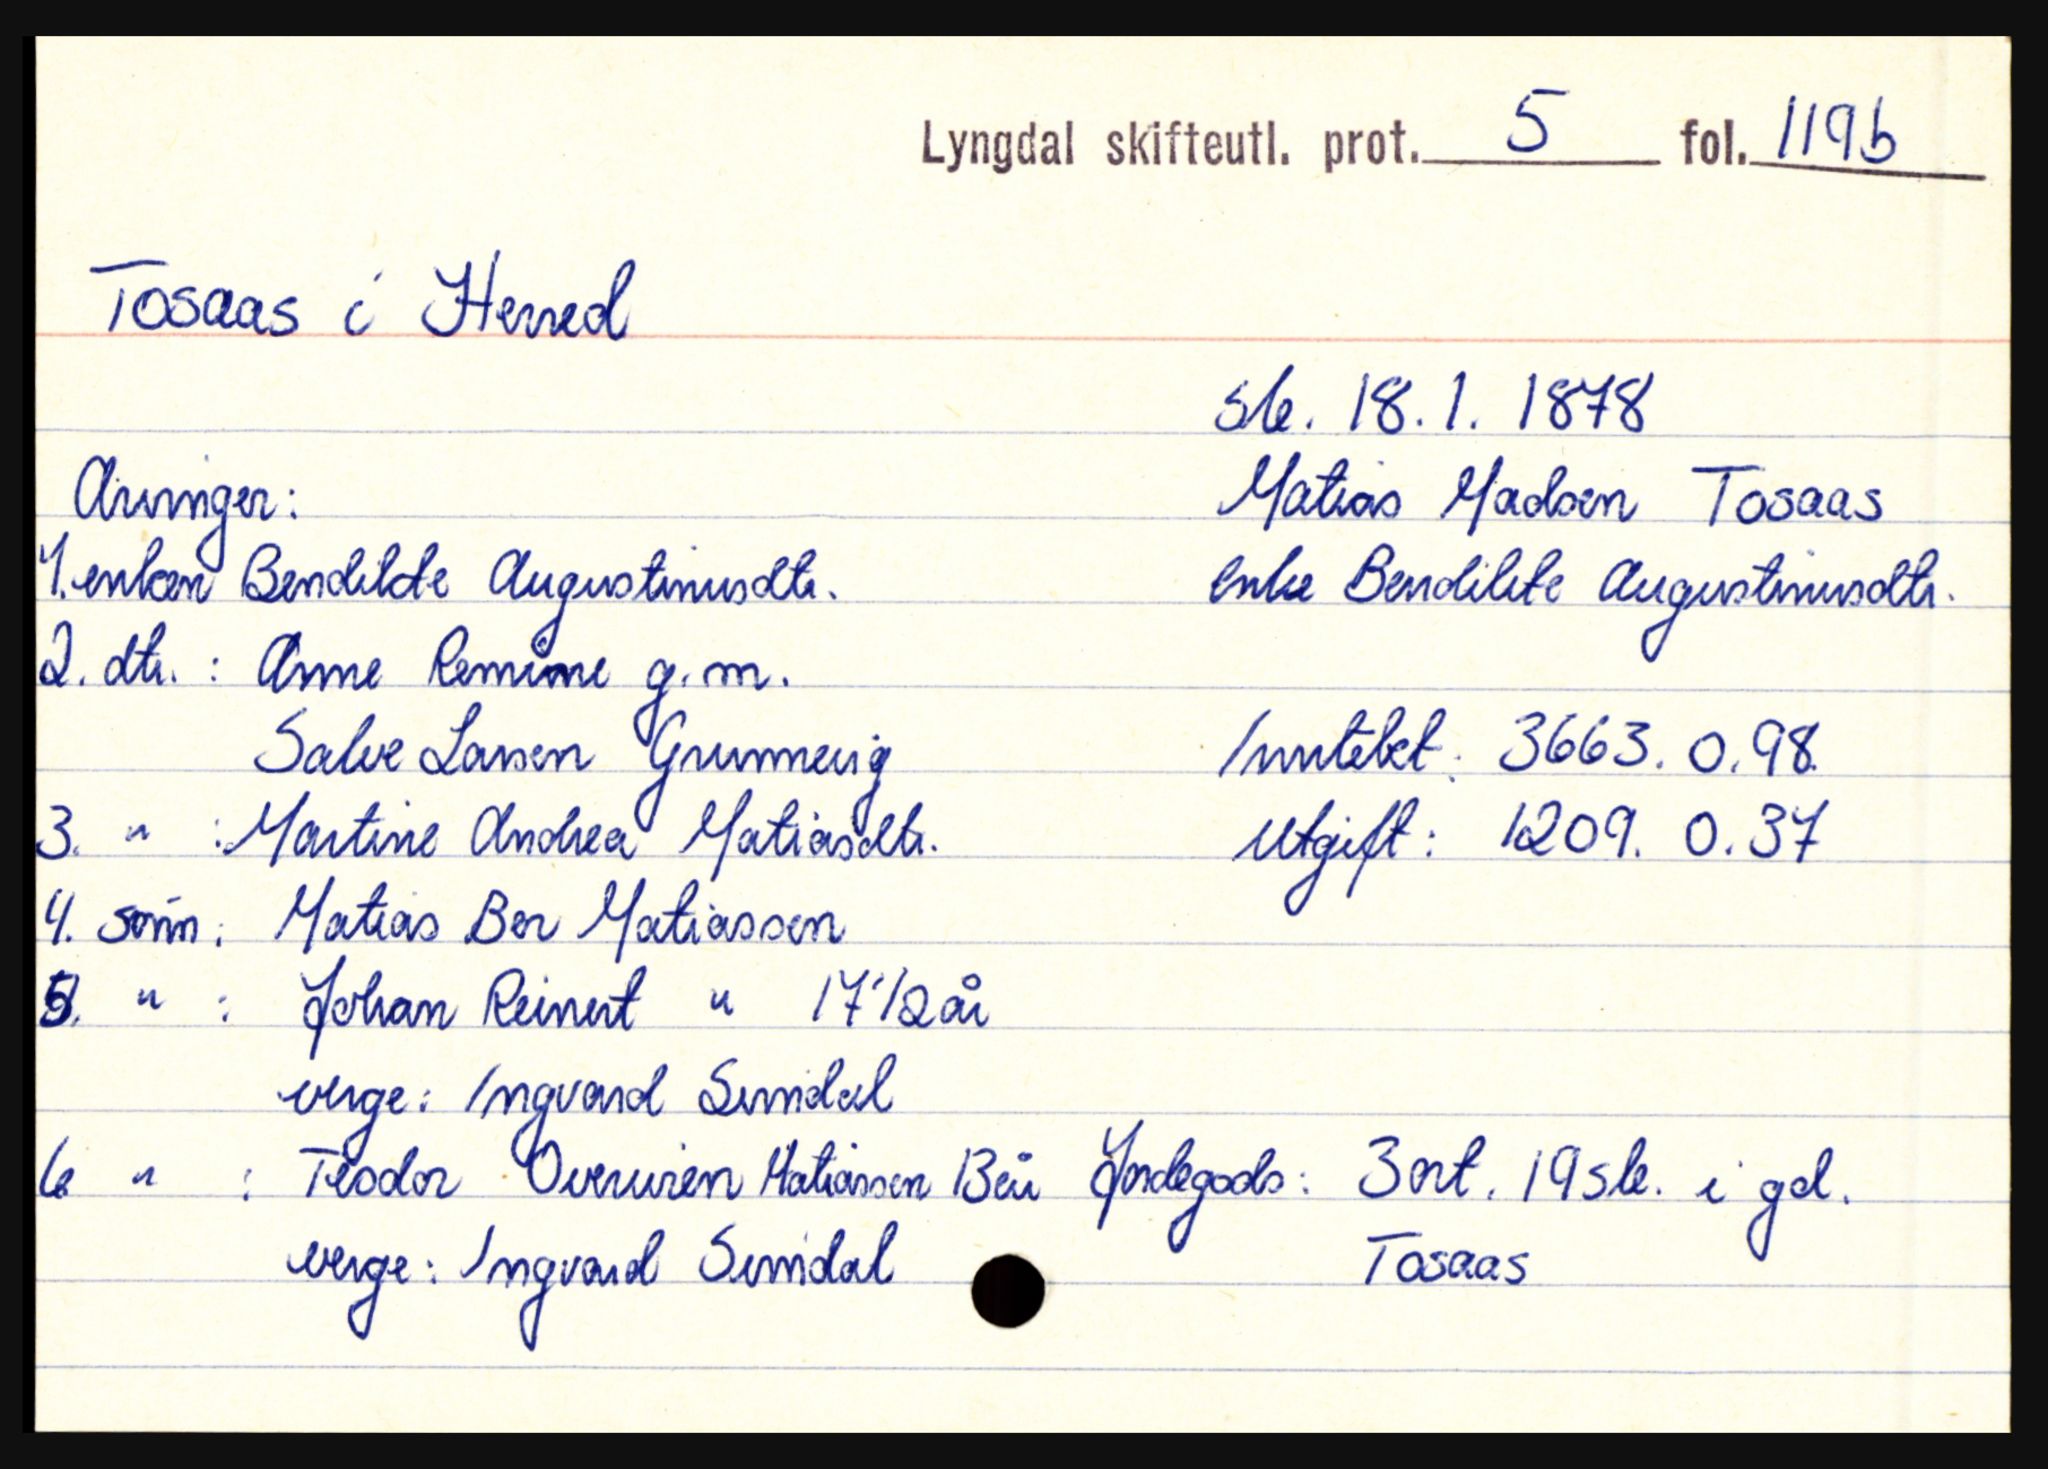 Lyngdal skifteutl. prot. 5 fol. 119b
Tosaas i Herred
sk. 18.1. 1878
Arvinger:
Matias Madsen Tosaas
1. enken Bendikte Augustinusdtr.
enke Bendikte Augustinusdtr.
2. dtr. : Anne Remine g.m.
Salve Larsen Grummevig
Inntekt: 3663. 0.98
3. " : Martine Andrea Matiasdtr.
Utgift: 1209. 0.37
4. sønn: Matias Ber Matiassen
5. " : Johan Reinert " 17 1/2 år
verge: Ingvard Sundal
6 " : Teodor Matiassen 13 år
Jordegods: 3 ort. 19 sk. i gd.
verge: Ingvard Sundal
Tosaas